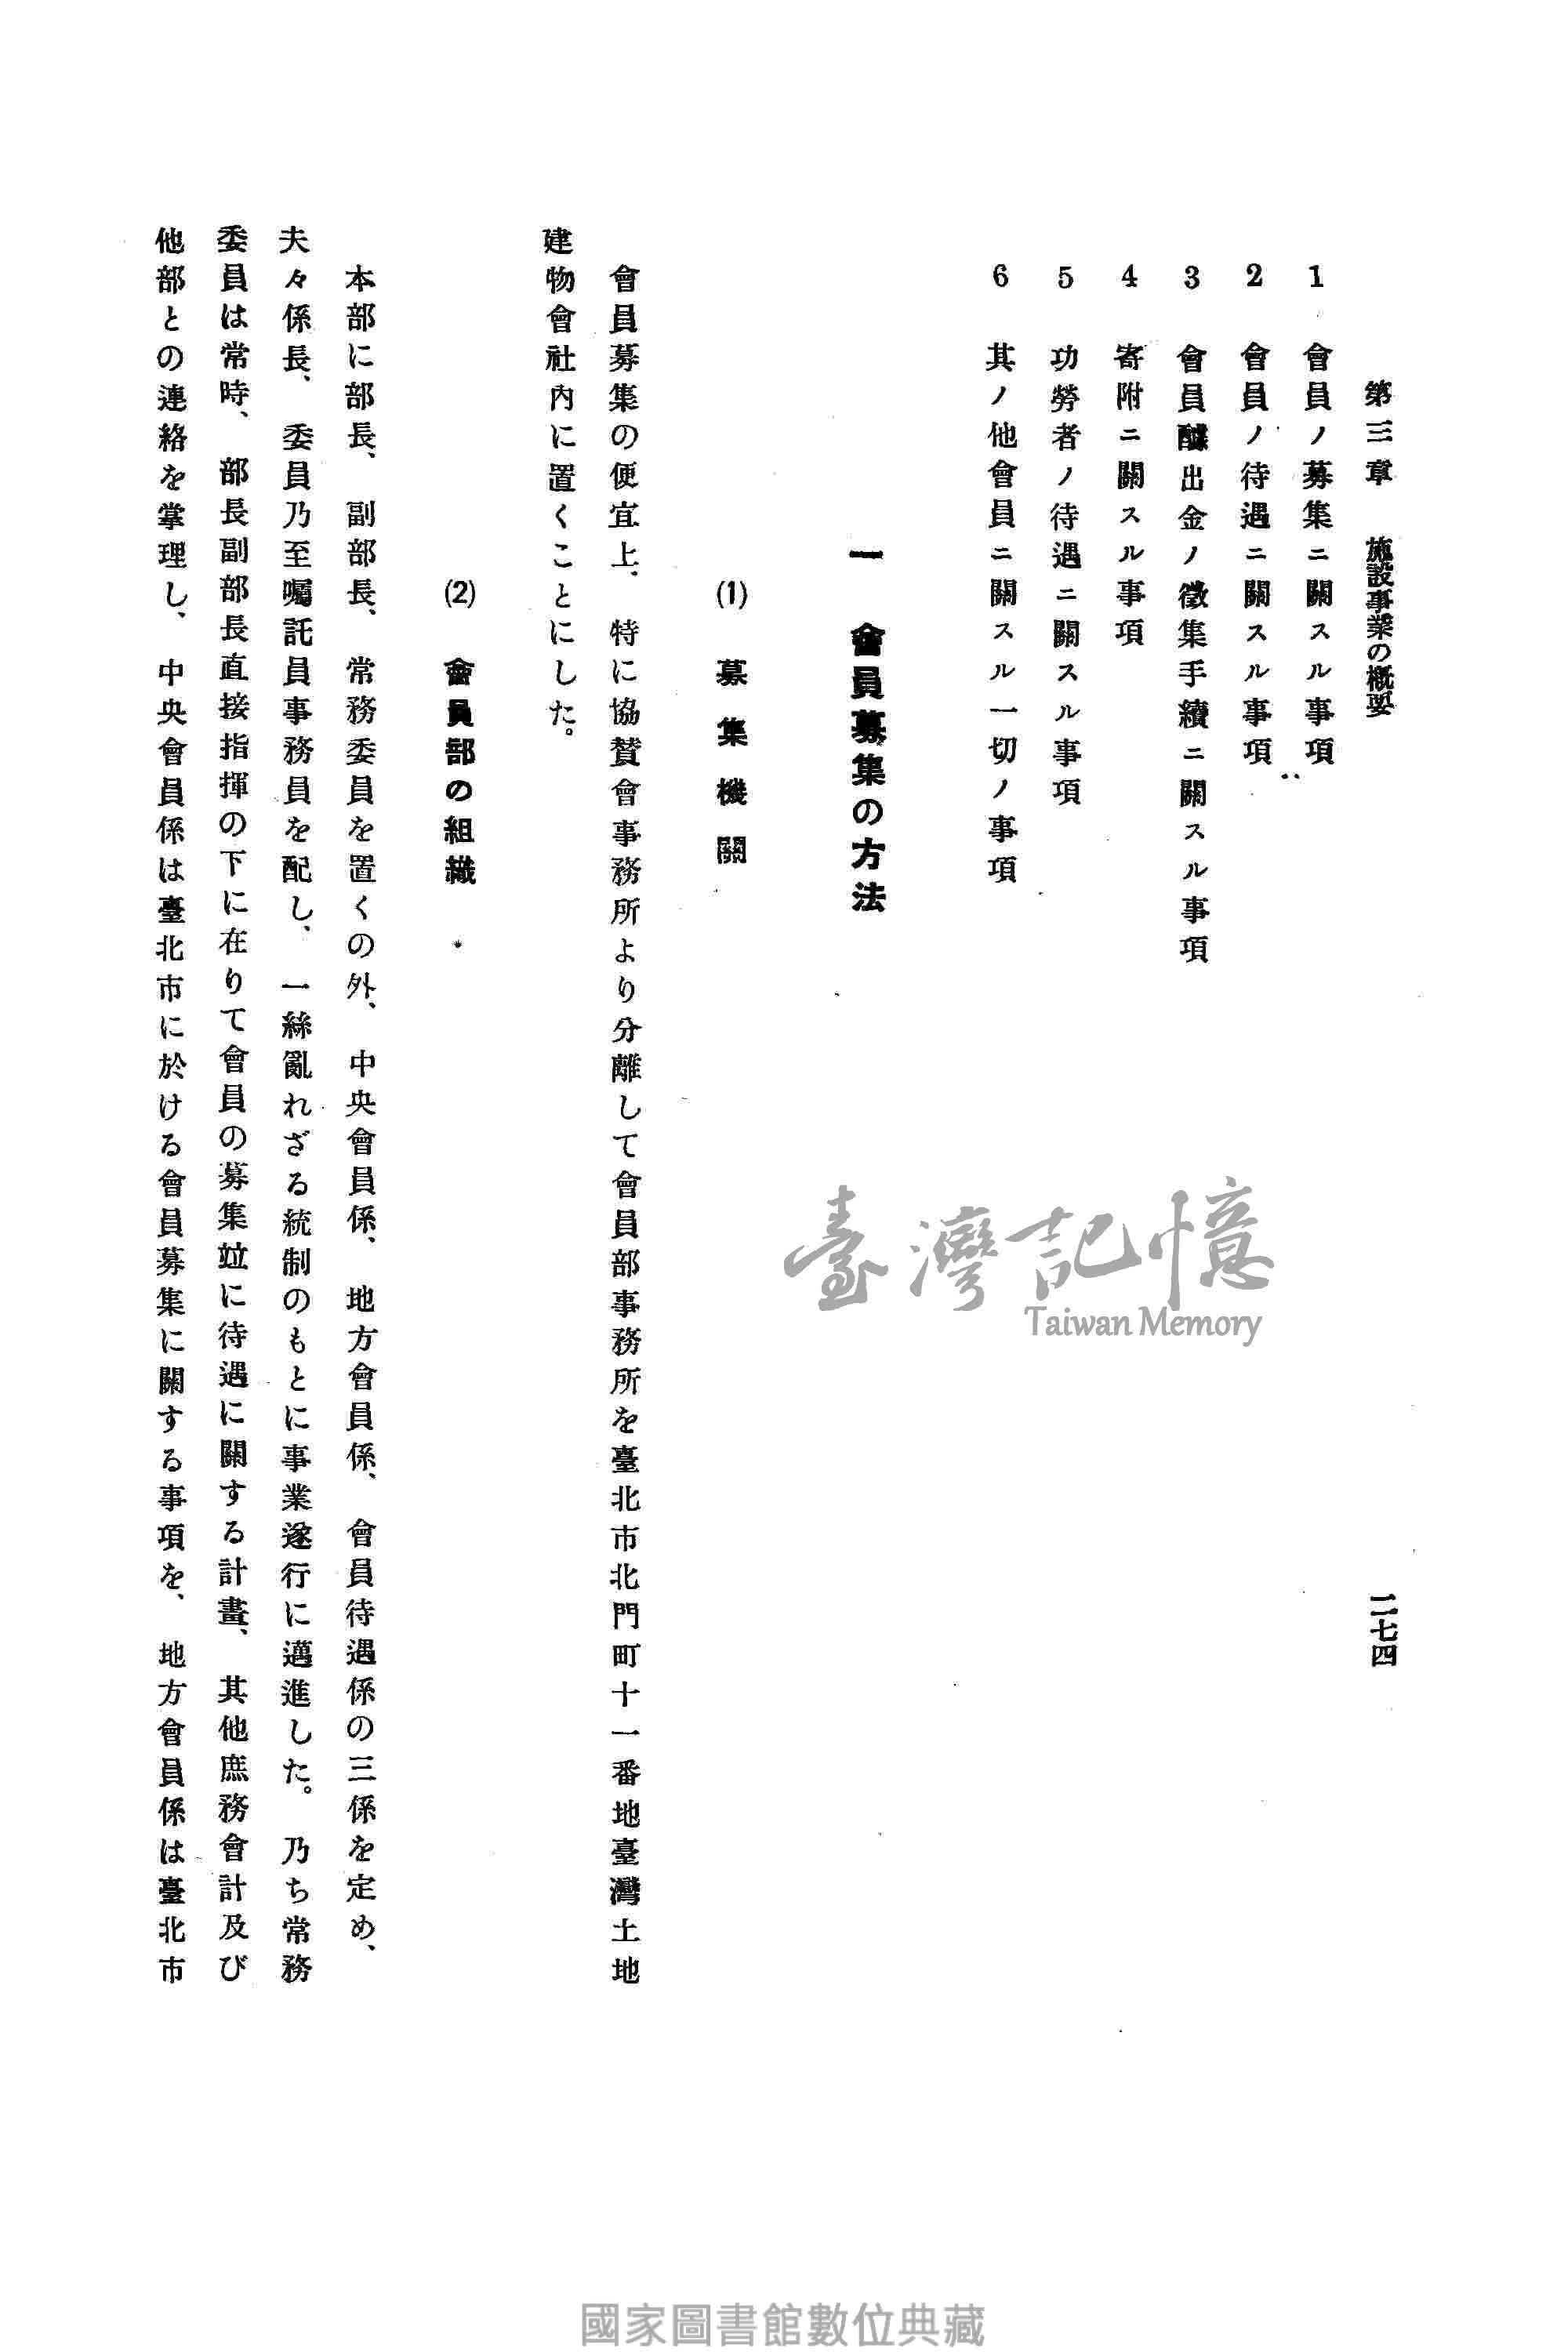 第三章 施設事業の概要 二七四
1 會員ノ募集ニ關スル事項
2 會員ノ待遇ニ關スル事項
3 會員醵出金ノ徵集手續ニ關スル事項
4 寄附ニ關スル事項
5 功勞者ノ待遇ニ關スル事項
6 其ノ他會員ニ關スル一切ノ事項
一 會員募集の方法
(1) 募集機關
會員募集の便宜上、特に協賛會事務所より分離して會員部事務所を臺北市北門町十一番地臺灣土地
建物會社内に置くことにした。
(2) 會員部の組織
本部に部長、副部長、常務委員を置くの外、中央會員係、地方會員係、會員待遇係の三係を定め、
夫々係長、委員乃至囑託員事務員を配し、一絲亂れざる統制のもとに事業遂行に邁進した。乃ち常務
委員は常時、部長副部長直接指揮の下に在りて會員の募集竝に待遇に關する計畫、其他庶務會計及び
他部との連絡を掌理し、中央會員係は臺北市に於ける會員募集に關する事項を、地方會員係は臺北市
臺灣記憶
Taiwan Memory
國家圖書館數位典藏